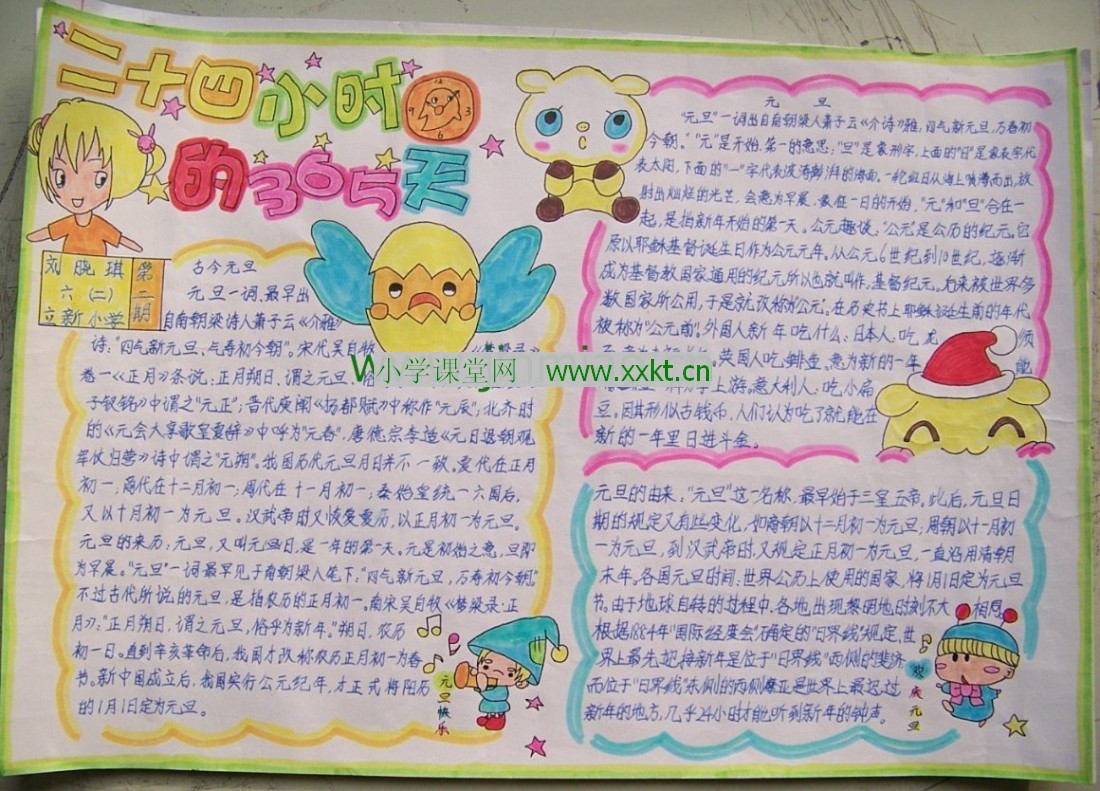 二十四小时
的365天
刘晓琪
六(二)
立新小学
第一期
古今元旦
元旦一词、最早出
自南朝梁诗人萧子云《介雅》
诗:“四气新元旦、万寿初今朝”。宋代吴自牧
卷一《正月》条说:正月朔日、谓之元旦、俗
子钗铭》中谓之“元正”;晋代庾阐《扬都赋》中称作“元辰”;北齐时
的《元会大享歌皇夏辞》中呼为“元春”,唐德宗李适《元日退朝观
军仗归营》诗中谓之“元朔”。我国历代元旦月日并不一致。夏代在正月
初一,商代在十二月初一;周代在十一月初一;秦始皇统一六国后,
又以十月初一为元旦。汉武帝时又恢复夏历,以正月初一为元旦。
元旦的来历:元旦,又叫元旦日,是一年的第一天。元是初始之意,旦即
为早晨。“元旦”一词最早见于南朝梁人笔下:“四气新元旦,万寿初今朝。”
不过古代所说的元旦,是指农历的正月初一。南宋吴自牧《梦粱录·正
月》:“正月朔日,谓之元旦,俗乎为新年。”朔日,农历
初一日。直到辛亥革命后,我国才改称农历正月初一为春
节。新中国成立后,我国实行公元纪年,才正式将阳历
的1月1日定为元旦。
元旦快乐
小学课堂网 www.xxkt.cn
元旦
“元旦”一词出自南朝梁人萧子云《介诗》雅:四气新元旦,万春初
今朝。“元”是开始、第一的意思;“旦”是象形字,上面的“日”是象表字代
表太阳,下面的“一”字代表波涛澎湃的海面,一轮红日从海上喷薄而出,放
射出灿烂的光芒,会意为早晨、象征一日的开始,“元”和“旦”合在一
起,是指新年开始的第一天。公元趣谈:“公元是公历的纪元。它
原以耶稣基督诞生日作为公元元年,从公元6世纪到10世纪,逐渐
成为基督教国家通用的纪元所以也就叫作,基督纪元,后来被世界多
数国家所公用,于是就改称为公元,在历史书上耶稣诞生前的年代
被称为“公元前”。外国人新年吃什么:日本人:吃龙
英国人吃鲱鱼,意为新的一年能
力争上游,意大利人:吃小扁
豆,因其形似古钱币,人们认为吃了就能在
新的一年里日进斗金。
元旦的由来:“元旦”这一名称,最早始于三皇五帝。此后,元旦日
期的规定又有些变化,如商朝以十二月初一为元旦;周朝以十一月初
一为元旦,到汉武帝时,又规定正月初一为元旦,一直沿用清朝
末年。各国元旦时间:世界公历上使用的国家,将1月1日定为元旦
节。由于地球自转的过程中,各地出现黎明地时刻不大相同,
根据1884年“国际经度会”确定的“日界线”规定,世
界上最先迎接新年是位于“日界线”西侧的斐济
而位于“日界线”东侧的西侧摩亚是世界上最迟过
新年的地方,几乎24小时才能听到新年的钟声。
欢庆元旦